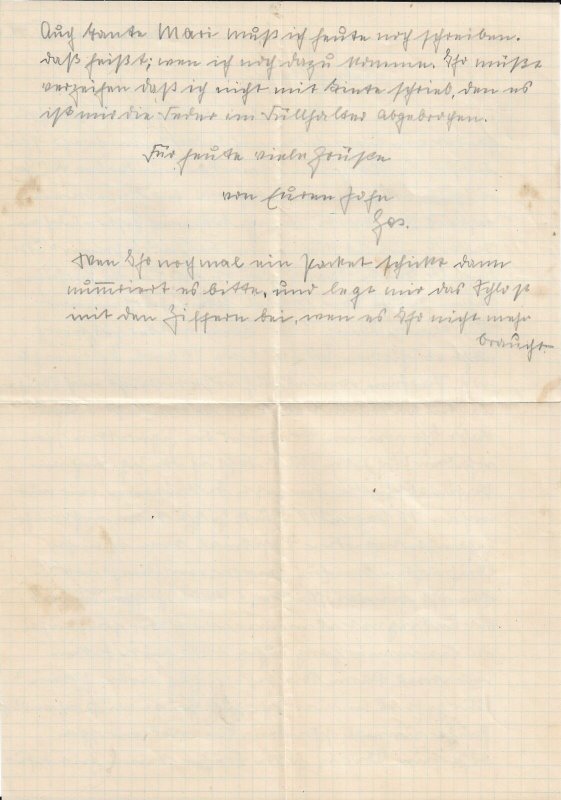 Auch tante Mari muß ich heute noch schreiben.
daß heißt; wen ich noch dazu komme. Ihr müßt
verzeihen daß ich nicht mit Tinte schrieb, den es
ist mir die Feder im Füllhalter abgebrochen.
Für heute viele Grüße
von Euren Sohn
Jos.
Wen Ihr nochmal ein Packet schickt dann
nummriert es bitte, und legt mir das Schloß
mit den Ziffern bei, wen es Ihr nicht mehr
braucht.